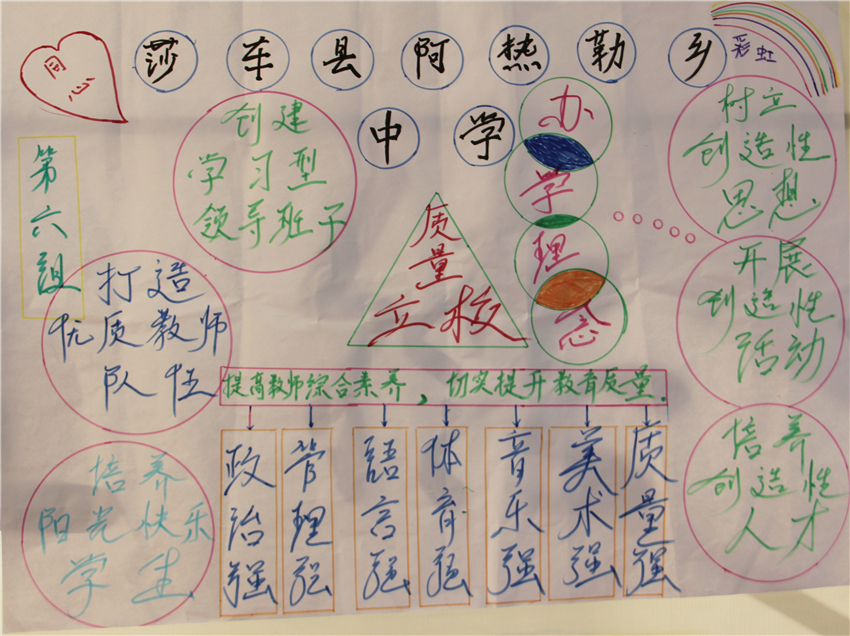 同心
莎车县阿热勒乡
彩虹
中学
办学理念
第六组
创建
学习型
领导班子
树立
创造性
思想
质量
立校
打造
优质教师
队伍
开展
创造性
活动
提高教师综合素养,切实提升教育质量.
培养
阳光快乐
学生
政治强
管理强
語言强
体育强
音乐强
美术强
质量强
培养
创造性
人才